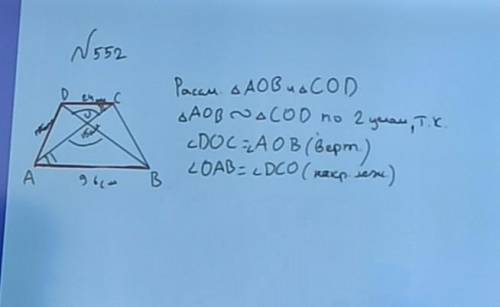 №552
D C
O
A B
96 см
Рассм. △AOB и △COD
△AOB ~ △COD по 2 углам, т.к.
∠DOC = ∠AOB (верт.)
∠OAB = ∠DCO (накр. леж.)